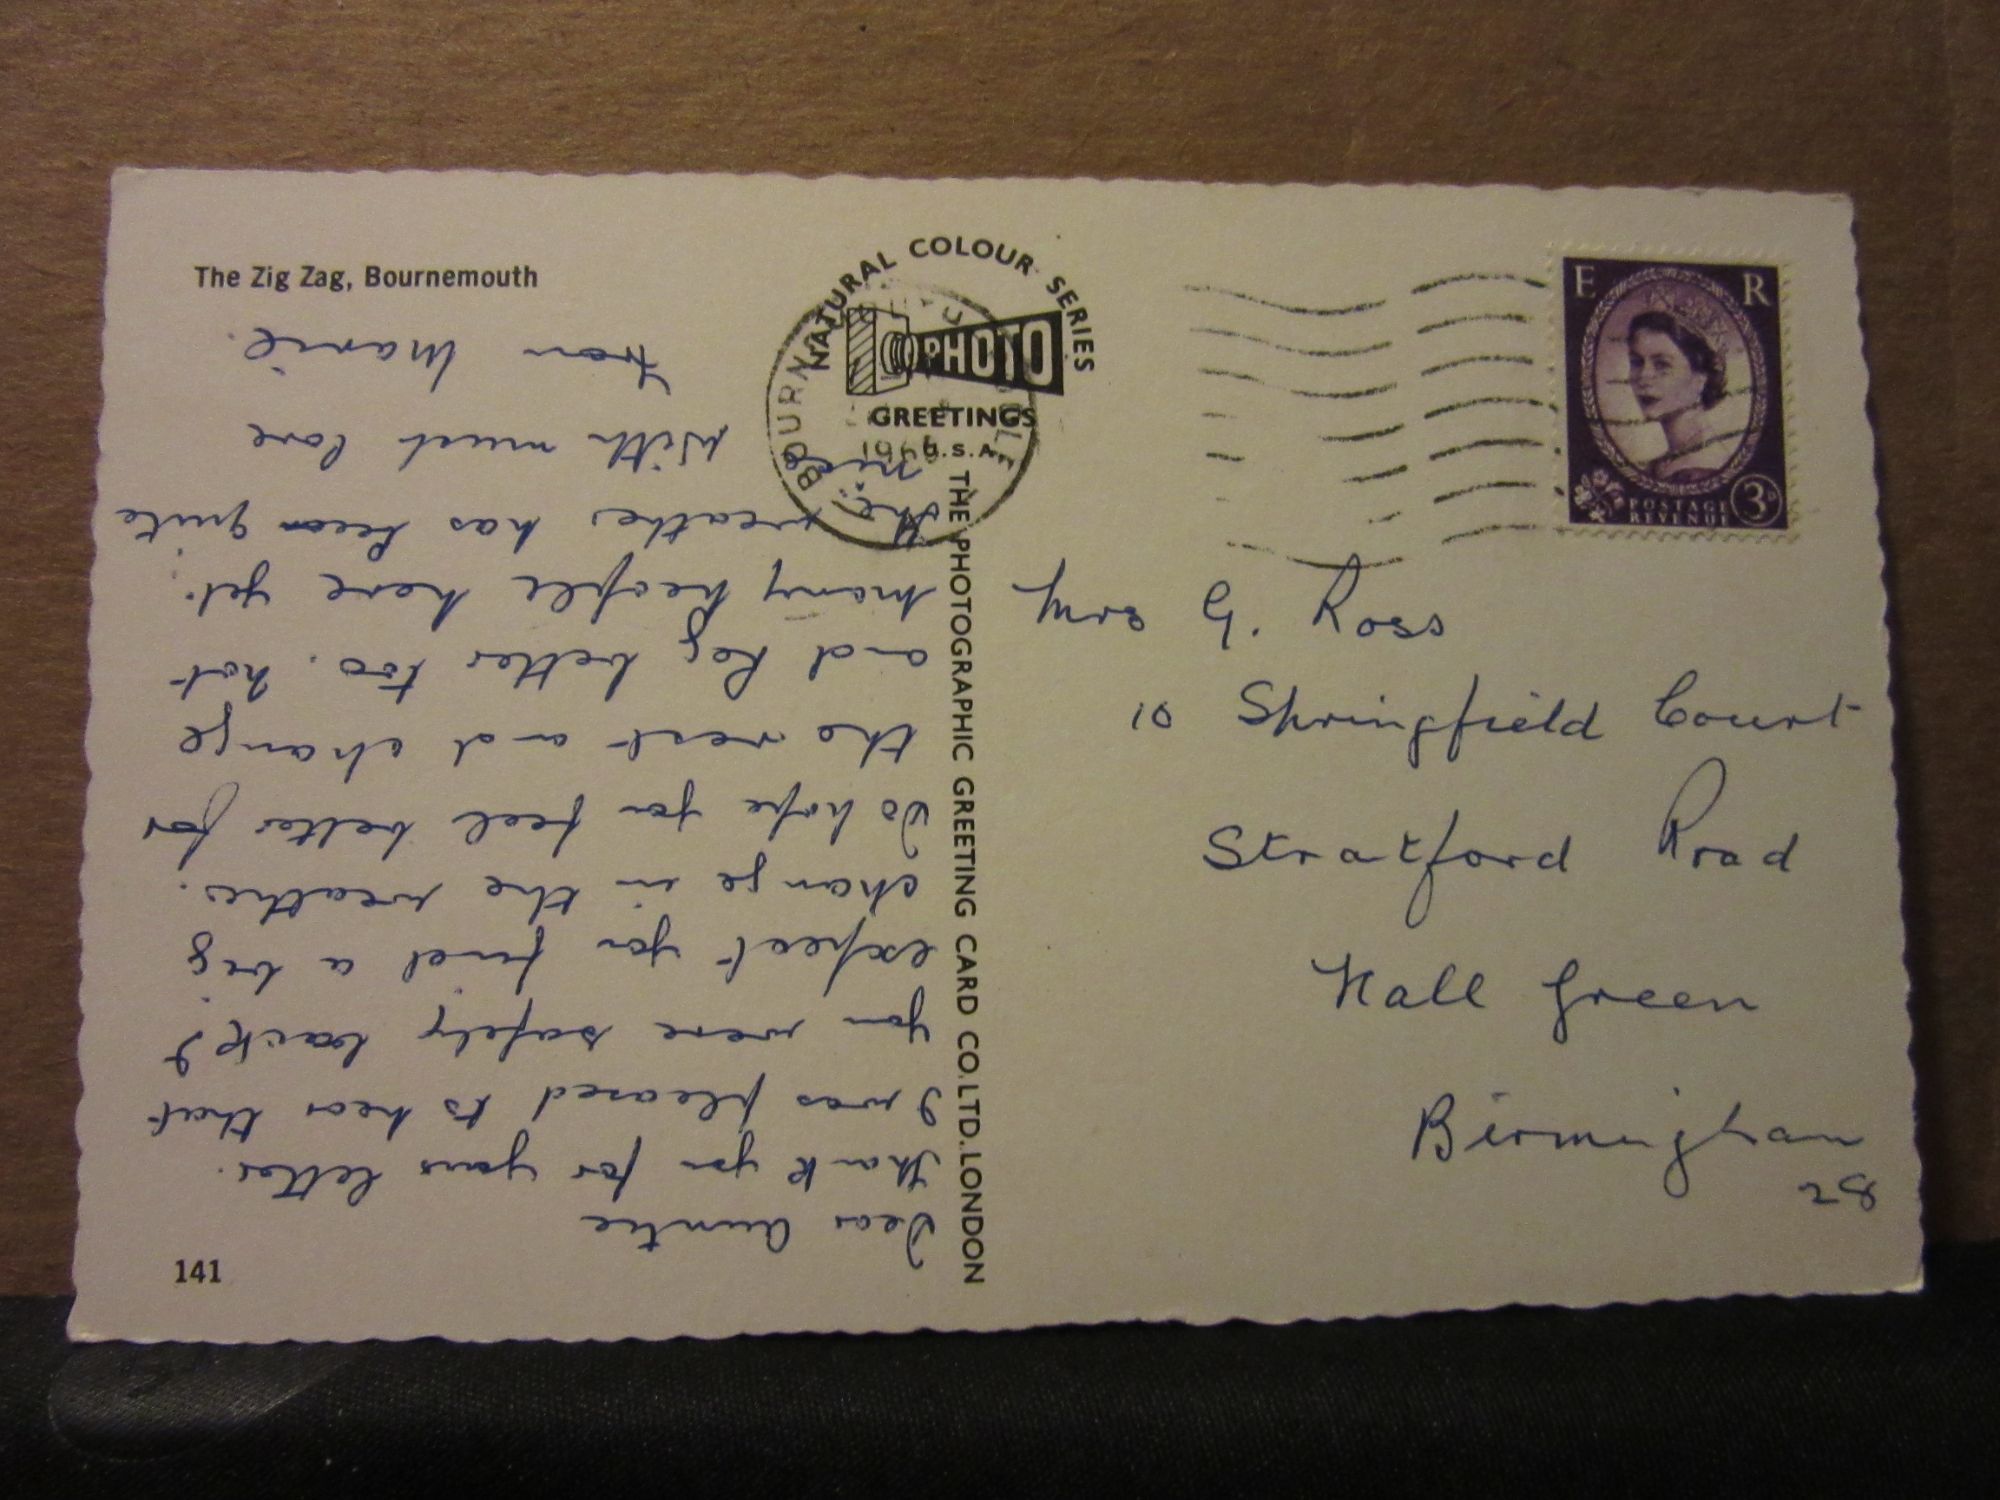 The Zig Zag, Bournemouth
141
NATURAL COLOUR SERIES
PHOTO
GREETINGS
THE PHOTOGRAPHIC GREETING CARD CO. LTD. LONDON
BOURNEMOUTH
E R
POSTAGE
REVENUE
3D
Mrs G. Ross
10 Springfield Court
Stratford Road
Hall Green
Birmingham
28
Dear Auntie
Thank you for your letter.
I was pleased to hear that
you were safely back. I
expect you find a big
change in the weather.
Do hope you feel better for
the rest and change
and Reg better too. Not
many people here yet.
The weather has been quite
nice.
With much love
from Marie.